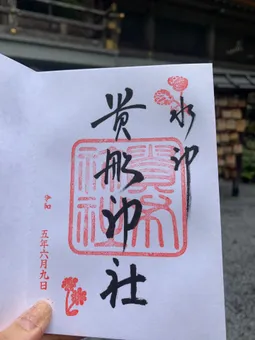 水神
貴船神社
貴布
祢社
令和 五年六月九日